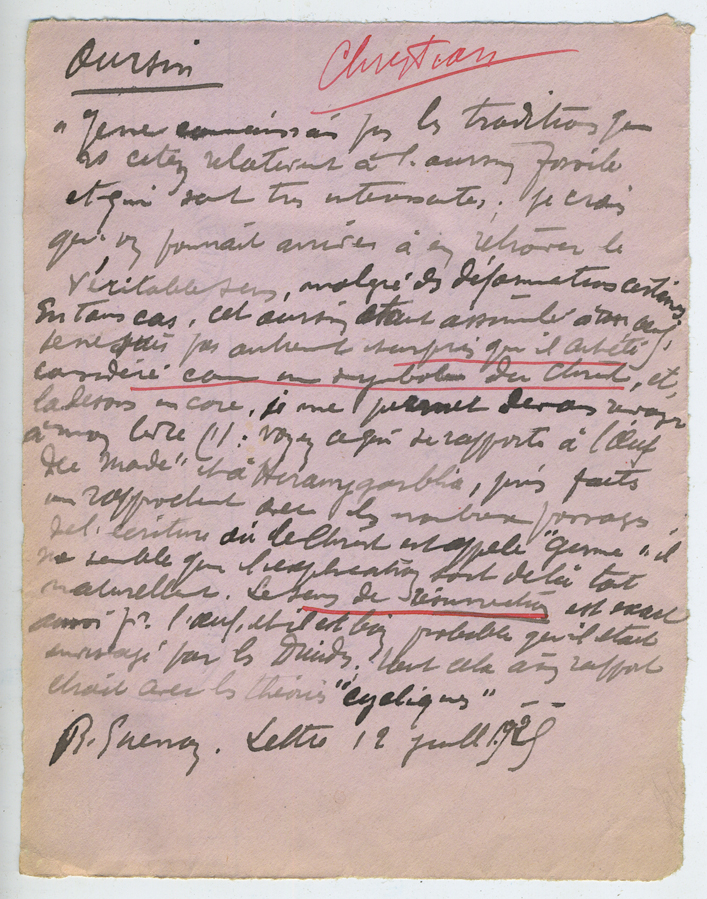 Oursin Christian
"Je ne connaissais pas les traditions que
vs citez relativent à l'oursin fossile
et qui sont très intéressantes. Je crois
que vs pourrait arriver à en retrover le
véritable sens, malgré ds déformations certaines
En tous cas, cet oursin étant assimilé à un œuf,
je ne suis pas autrement surpris qu'il ait été
considéré come un symbole du Christ, et,
la dessus encore, je me permet de vous renvoyer
à mon livre (1): voyez ce qui se rapporte à l'œuf
de Monde" et à Hiranyagarbha, puis faits
un rapprochent avec les nombreux passages
de l'écriture où le Christ est appelé "Germe", il
me semble que l'explication sort de là tot
naturellent. Le sens de résurrection est exact
aussi pr. l'œuf, et il est bien probable qu'il était
envisagé par les Druides. Tout cela a un rapport
étroit avec les théories "cycliques"
R. Guenon. Lettre 12 juill. 1925